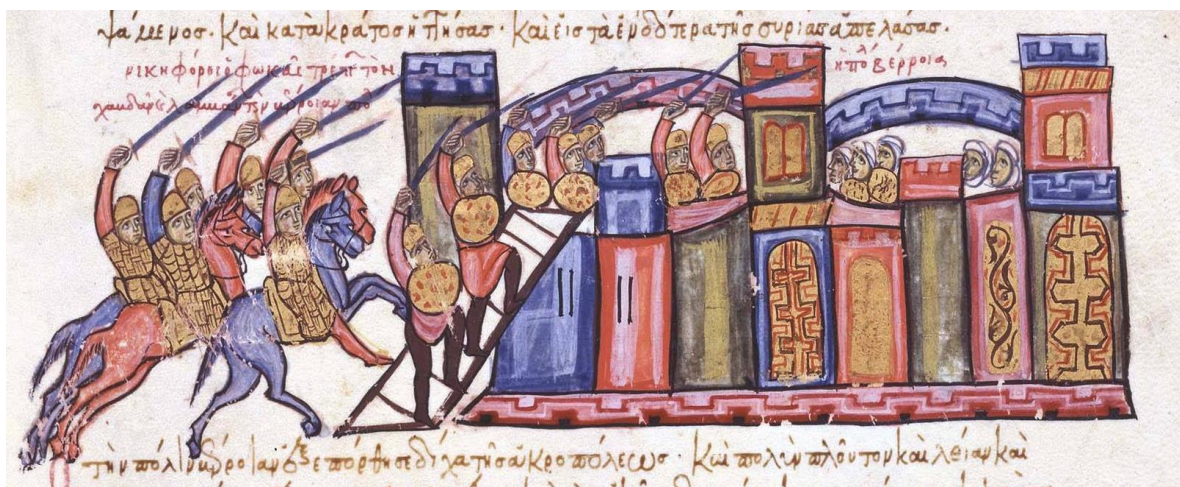 ψάμενος· Καὶ κατακράτος ἡττήσας· Καὶ εἰς τὰ ἐνδότερα τῆς συρίας ἀπελάσας·
νικηφόρος ὁ φωκᾶς τρέπει τὸν
τὴν βέρροιαν
ἡ πόλις βέρροια
τὴν πόλιν βέρροιαν ἐξεπόρθησε δίχα τῆς ἀκροπόλεως· Καὶ πολὺν πλοῦτον καὶ λείαν καὶ